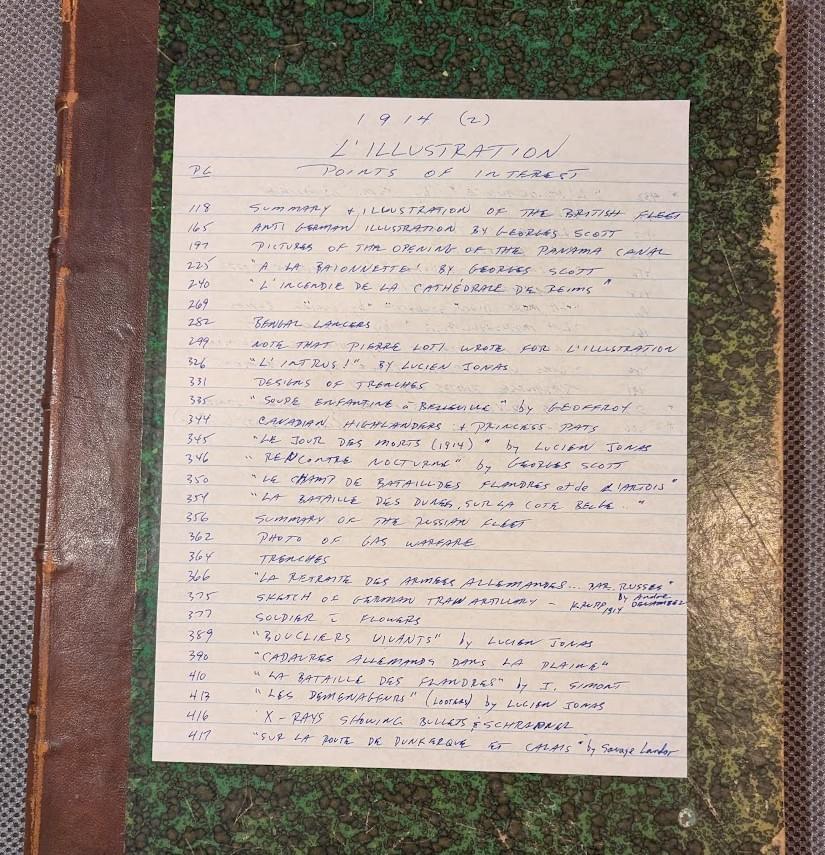 1914 (2)
L'ILLUSTRATION
PG POINTS OF INTEREST
118 SUMMARY + ILLUSTRATION OF THE BRITISH FLEET
165 ANTI GERMAN ILLUSTRATION BY GEORGES SCOTT
197 PICTURES OF THE OPENING OF THE PANAMA CANAL
225 "A LA BAIONNETTE! BY GEORGES SCOTT
240 "L'INCENDIE DE LA CATHÉDRALE DE REIMS"
269 " " " "
282 BENGAL LANCERS
299 NOTE THAT PIERRE LOTI WROTE FOR L'ILLUSTRATION
326 "L'INTRUS!" BY LUCIEN JONAS
331 DESIGNS OF TRENCHES
335 "SOUPE ENFANTINE à BELLEVILLE" by GEOFFROY
344 CANADIAN HIGHLANDERS + PRINCESS PATS
345 "LE JOUR DES MORTS (1914)" by LUCIEN JONAS
346 "RENCONTRE NOCTURNE" by GEORGES SCOTT
350 "LE CHAMP DE BATAILLDES FLANDRES et de L'ARTOIS"
354 "LA BATAILLE DES DUNES, SUR LA COTE BELGE..."
356 SUMMARY OF THE RUSSIAN FLEET
362 PHOTO OF GAS WARFARE
364 TRENCHES
366 "LA RETRAITE DES ARMEES ALLEMANDES... PAR RUSSES"
375 SKETCH OF GERMAN TRAIN ARTILLERY - KRUPP 1914 by André DEVAMBEZ
377 SOLDIER FLOWERS
389 "BOUCLIERS VIVANTS" by LUCIEN JONAS
390 "CADAVRES ALLEMANDS DANS LA PLAINE"
410 "LA BATAILLE DES FLANDRES" by J. SIMONT
413 "LES DEMENAGEURS" (LOOTERS) by LUCIEN JONAS
416 X-RAYS SHOWING BULLETS & SCHRAPNEL
417 "SUR LA ROUTE DE DUNKERQUE ET CALAIS" by Savage Landor